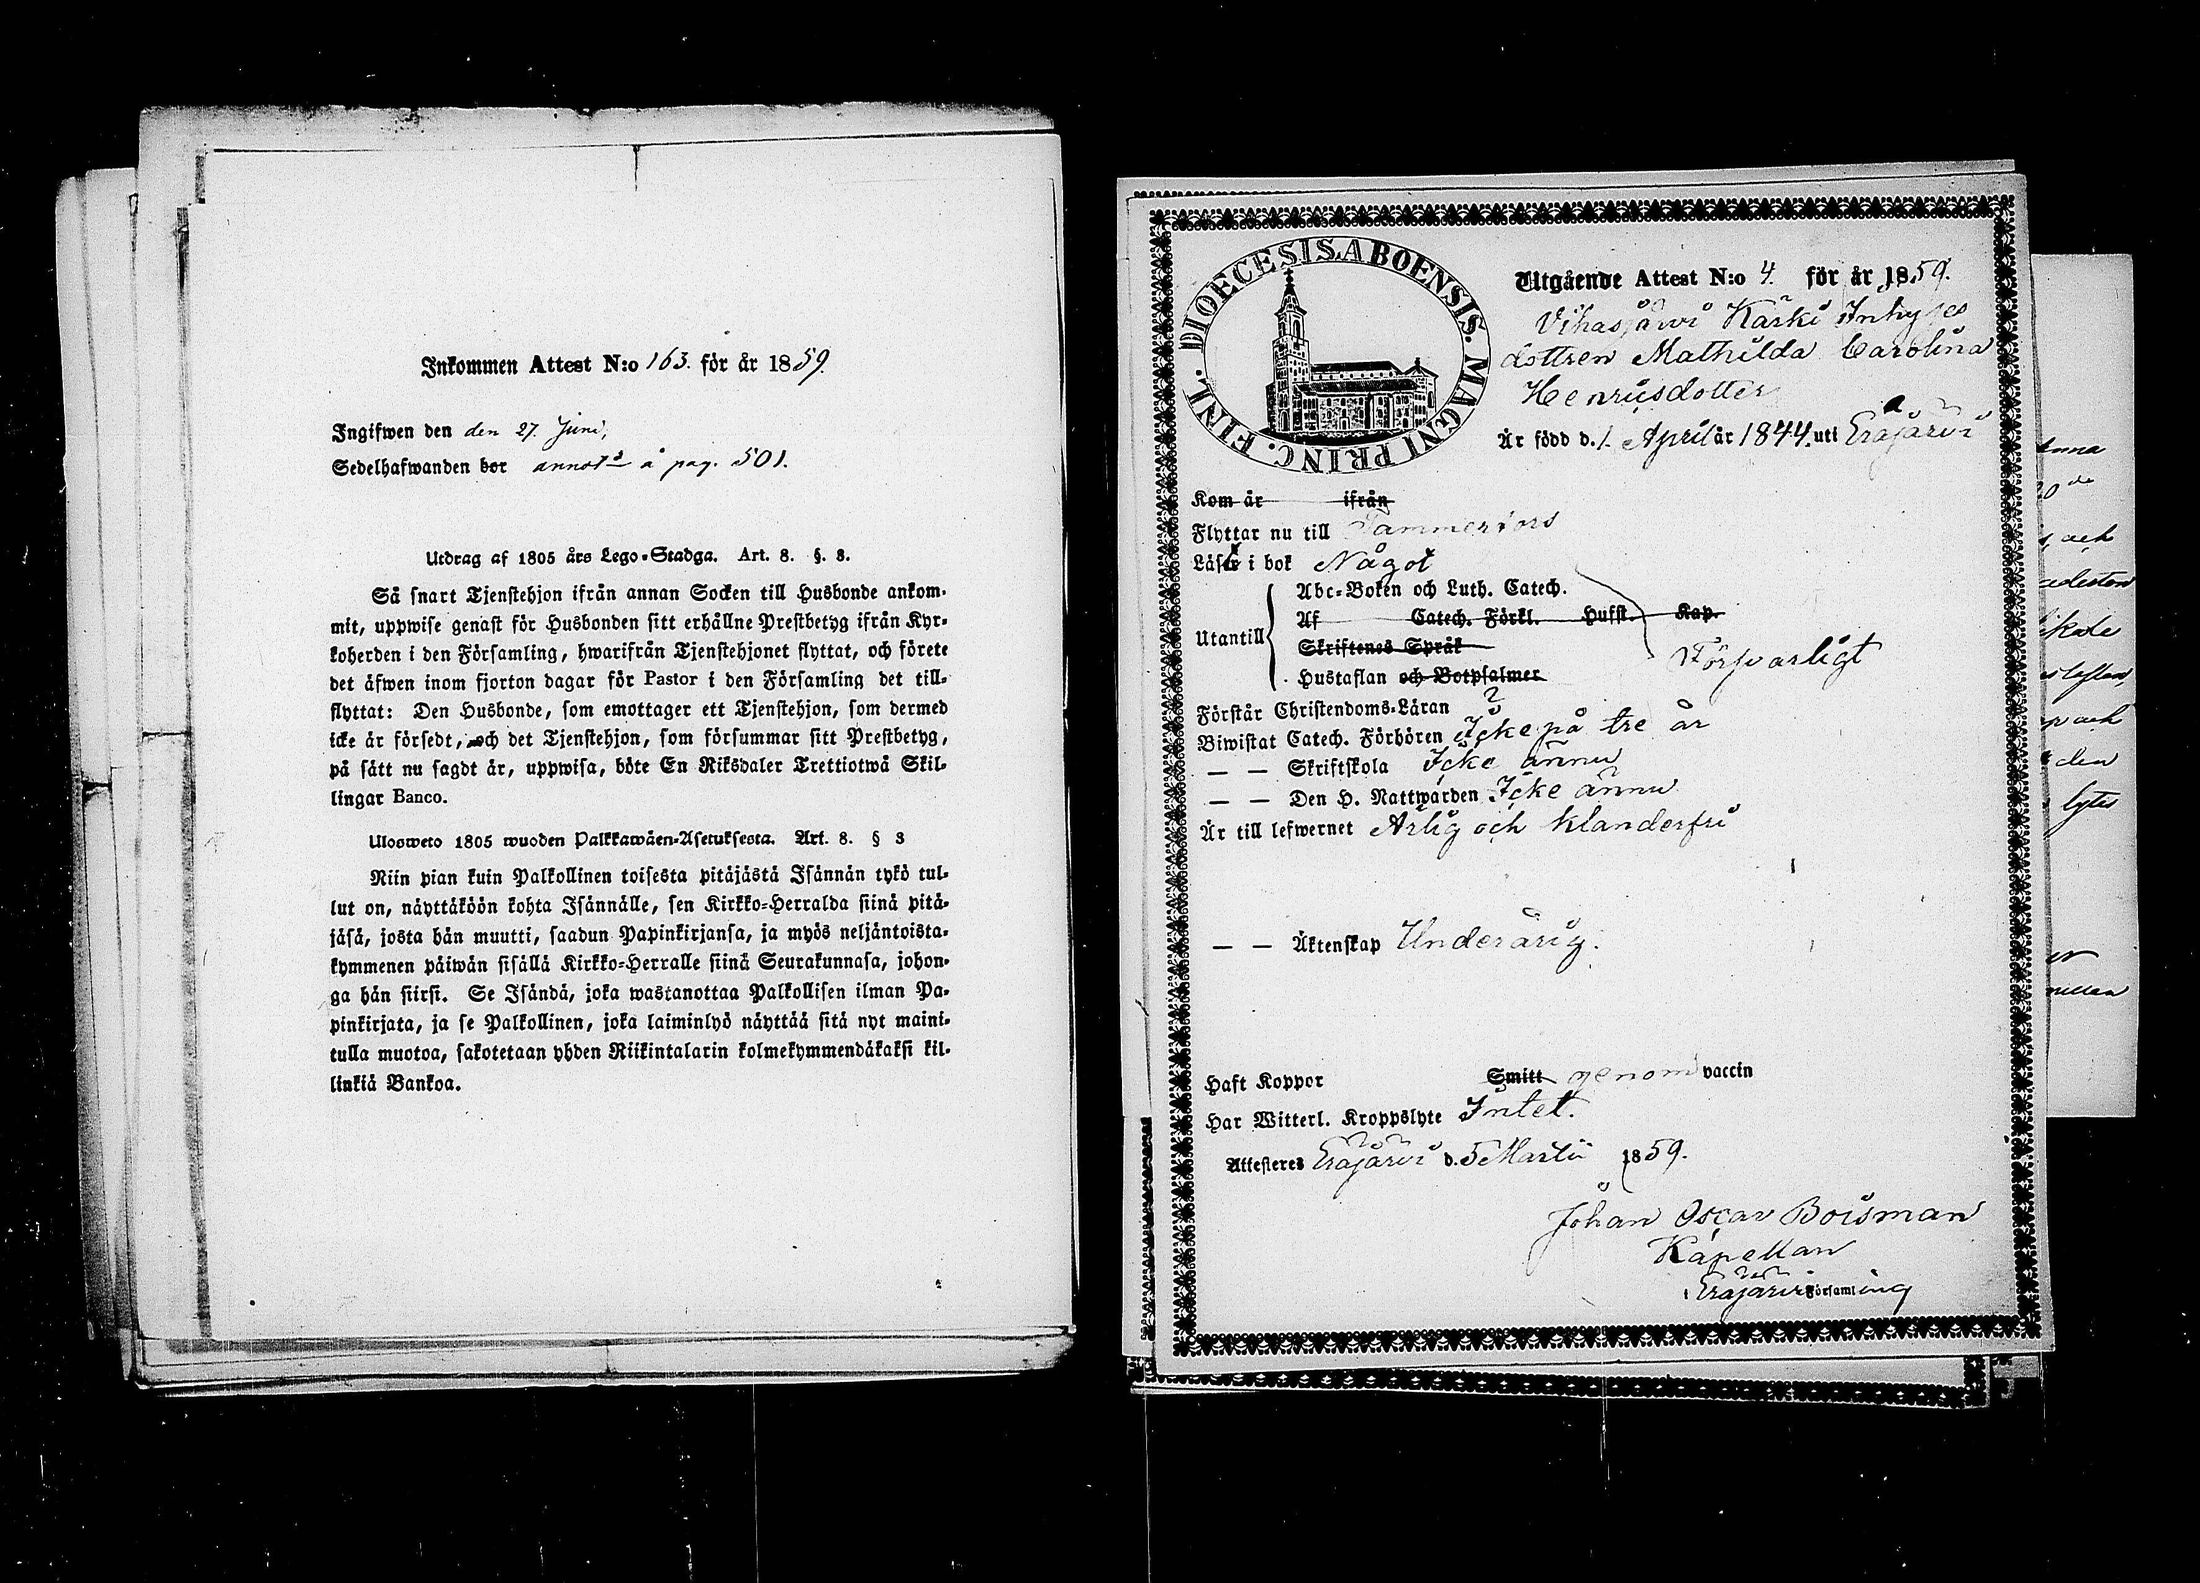 Inkommen Attest N:o 163. för år 1859.
Ingifwen den den 27. Juni,
Sedelhafwanden bor annot:d å pag. 501.
Utdrag af 1805 års Lego-Stadga. Art. 8. §. 3.
Så snart Tjenstehjon ifrån annan Socken till Husbonde ankom-
mit, uppwise genast för Husbonden sitt erhållne Prestbetyg ifrån Kyr-
koherden i den Församling, hwarifrån Tjenstehjonet flyttat, och förete
det äfwen inom fjorton dagar för Pastor i den Församling det till-
flyttat: Den Husbonde, som emottager ett Tjenstehjon, som dermed
icke är försedt, och det Tjenstehjon, som försummar sitt Prestbetyg,
på sätt nu sagdt är, uppwisa, böte En Riksdaler Trettiotwå Skil-
lingar Banco.
Ulosweto 1805 wuoden Palkkawäen-Asetuksesta. Art. 8. § 3
Niin pian kuin Palkollinen toisesta pitäjästä Isännän tykö tul-
lut on, näyttäköön kohta Isännälle, sen Kirkko-Herralda siinä pitä-
jäsä, josta hän muutti, saadun Papinkirjansa, ja myös neljäntoista-
kymmenen päiwän sisällä Kirkko-Herralle siinä Seurakunnasa, johon-
ga hän siirsi. Se Isändä, joka wastanottaa Palkollisen ilman Pa-
pinkirjata, ja se Palkollinen, joka laiminlyö näyttää sitä nyt maini-
tulla muotoa, sakotetaan yhden Riikintalarin kolmekymmendäkaksi kil-
linkiä Bankoa.
DIOECESIS. ABOENSIS. MAGNI PRINC. FINL.
Utgående Attest N:o 4. för år 1859.
Vihasjärwi Karki Inhyses
dottren Mathilda Carolina
Henricsdotter
Är född d. 1. April år 1844. uti Eräjärvi
Kom år ifrån
Flyttar nu till Tammerfors
Läser i bok Något
Abc-Boken och Luth. Catech.
Af Catech. Förkl. Husst. Kap.
Utantill
Skriftenes Språk
Hustaflan och Botpsalmer
Försvarligt
Förstår Christendoms-Läran ?
Biwistat Catech. Förhören Icke på tre år
— — Skriftskola Icke ännu
— — Den H. Nattwarden Icke ännu
Är till lefwernet Ärlig och klanderfri
— — Äktenskap Underårig.
Haft Koppor Smitt genom vaccin
Har Witterl. Kroppslyte Intet.
Attesteres Eräjärvi d. 5 Martii 1859.
Johan Oscar Boisman
Kapellan
Eräjärvi Församling